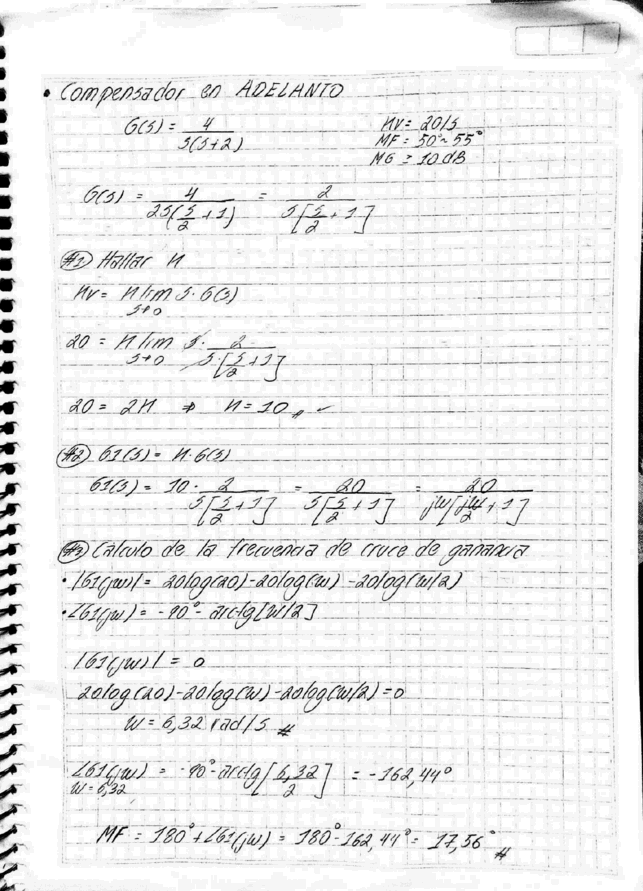 • Compensador en ADELANTO
G(s) = 4 / s(s+2)    Kv = 20/s
MF = 50° ~ 55°
MG ≥ 10 dB
G(s) = 4 / 2s(s/2 + 1) = 2 / s[s/2 + 1]
#1) Hallar K
Kv = K lim s→0 s · G(s)
20 = K lim s→0 s · 2 / s·[s/2 + 1]
20 = 2K ⇒ K = 10 // ✓
#2) G1(s) = K·G(s)
G1(s) = 10 · 2 / s[s/2 + 1] = 20 / s[s/2 + 1] = 20 / jw[jw/2 + 1]
#3) Calculo de la frecuencia de cruce de ganancia
• |G1(jw)| = 20log(20) - 20log(w) - 20log(w/2)
• ∠G1(jw) = -90° - arctg[w/2]
|G1(jw)| = 0
20log(20) - 20log(w) - 20log(w/2) = 0
w = 6,32 rad/s //
∠G1(jw) w=6,32 = -90° - arctg[6,32/2] = -162,44°
MF = 180° + ∠G1(jw) = 180° - 162,44° = 17,56° //